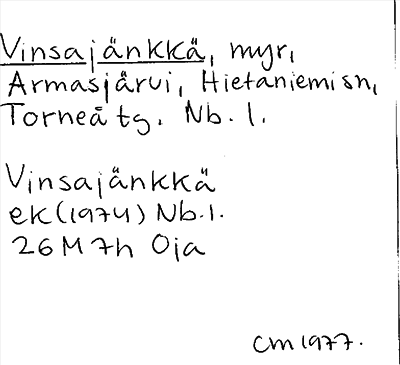 Vinsajänkkä, myr,
Armasjärvi, Hietaniemi sn,
Torneå tg. Nb. l.
Vinsajänkkä
ek (1974) Nb. l.
26M 7h Oja
CM 1977.